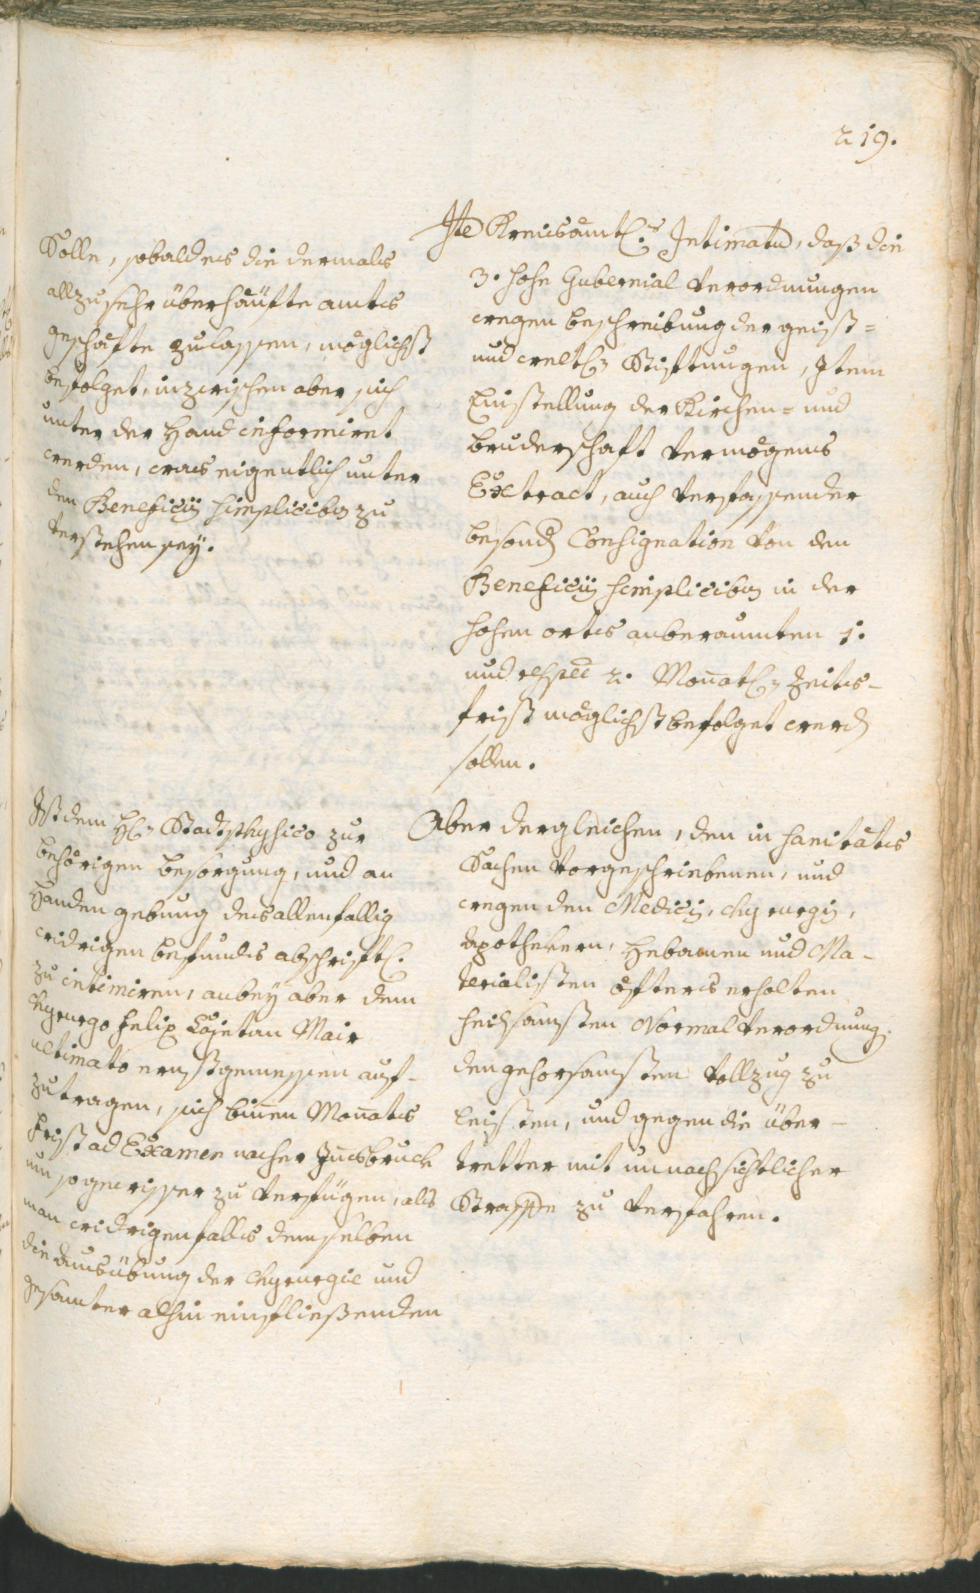 219.
Solle, sobald es die dermals
allzusehr überhäufte amts
geschäfte zulassen, möglichst
befolget, inzwischen aber sich
unter der Hand informiret
werden, was eigentlich unter
den Beneficÿ simplicibus zu
verstehen seÿ.
Ite Kreisämtl:s Intimatum, daß die
3. hohe Gubernial Verordnungen
wegen beschreibung der geist=
und weltl: Stiftungen, Item
Einstellung der Kirchen= und
bruderschaft Vermögens
Extract, auch verfassender
besond. Consignation von den
Beneficiÿ simplicibus in der
hohen orts anberaumten 1.
und respec 2. Monatl: Zeits-
frist möglichst befolget werd.
sollen.
Ist dem H: Stadtphysico zur
behörigen besorgung, und an
Handen gebung des allenfallig
widrigen befundes abschriftl.
zu intimiren, anbeÿ aber dem
Chyrurgo Felix Cajetan Mair
ultimato ernstgemessen auf-
zutragen, sich binnen Monats
Frist ad Examen nacher Innsbruck
um so gewisser zu verfügen, als
man widrigenfalls demselben
die ausübung der Chyrurgie und
gesamter alhin einfließenden
Aber dergleichen, den in sanitäts
Sachen vorgeschriebenen, und
wegen den Medicis, Chyrurgis,
Apothekern, Hebamen und Ma-
terialisten öfters erholten
heilsamsten Normal Verordnung.
den gehorsamsten Vollzug zu
leisten, und gegen die über-
tretter mit unnachsichtlicher
Straffe zu verfahren.